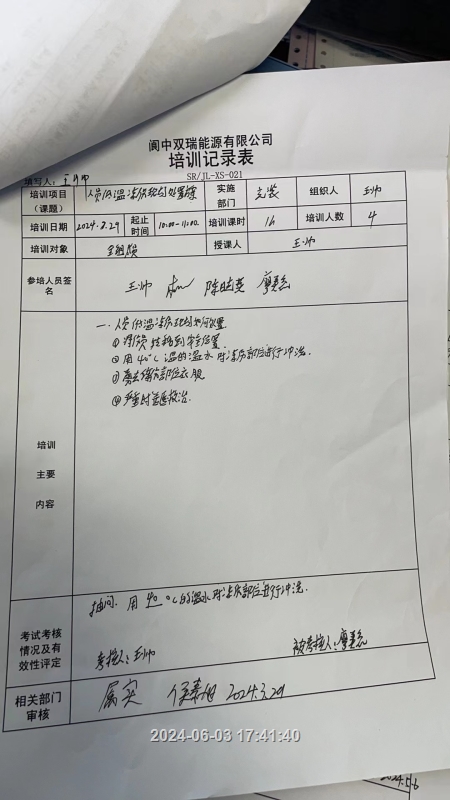 阆中双瑞能源有限公司
培训记录表
SR/JL-XS-021
填写人：王帅
培训项目（课题） 人员低温冻伤现场处置 实施部门 充装 组织人 王帅
培训日期 2024.3.29 起止时间 10:00-11:00 培训课时 1h 培训人数 4
培训对象 授课人 王帅
参培人员签名 王帅 陈 廖
培训主要内容
一.人员低温冻伤现场如何处置
① 转移到安全位置
②用40℃温的温水对冻伤部位进行冲洗.
③ 部位衣服
④严重时 救治.
考试考核情况及有效性评定
抽问.用40℃的温水对冻伤部位进行冲洗.
考核人:王帅 被考核人:廖
相关部门审核 属实 2024.3.29
2024-06-03 17:41:40